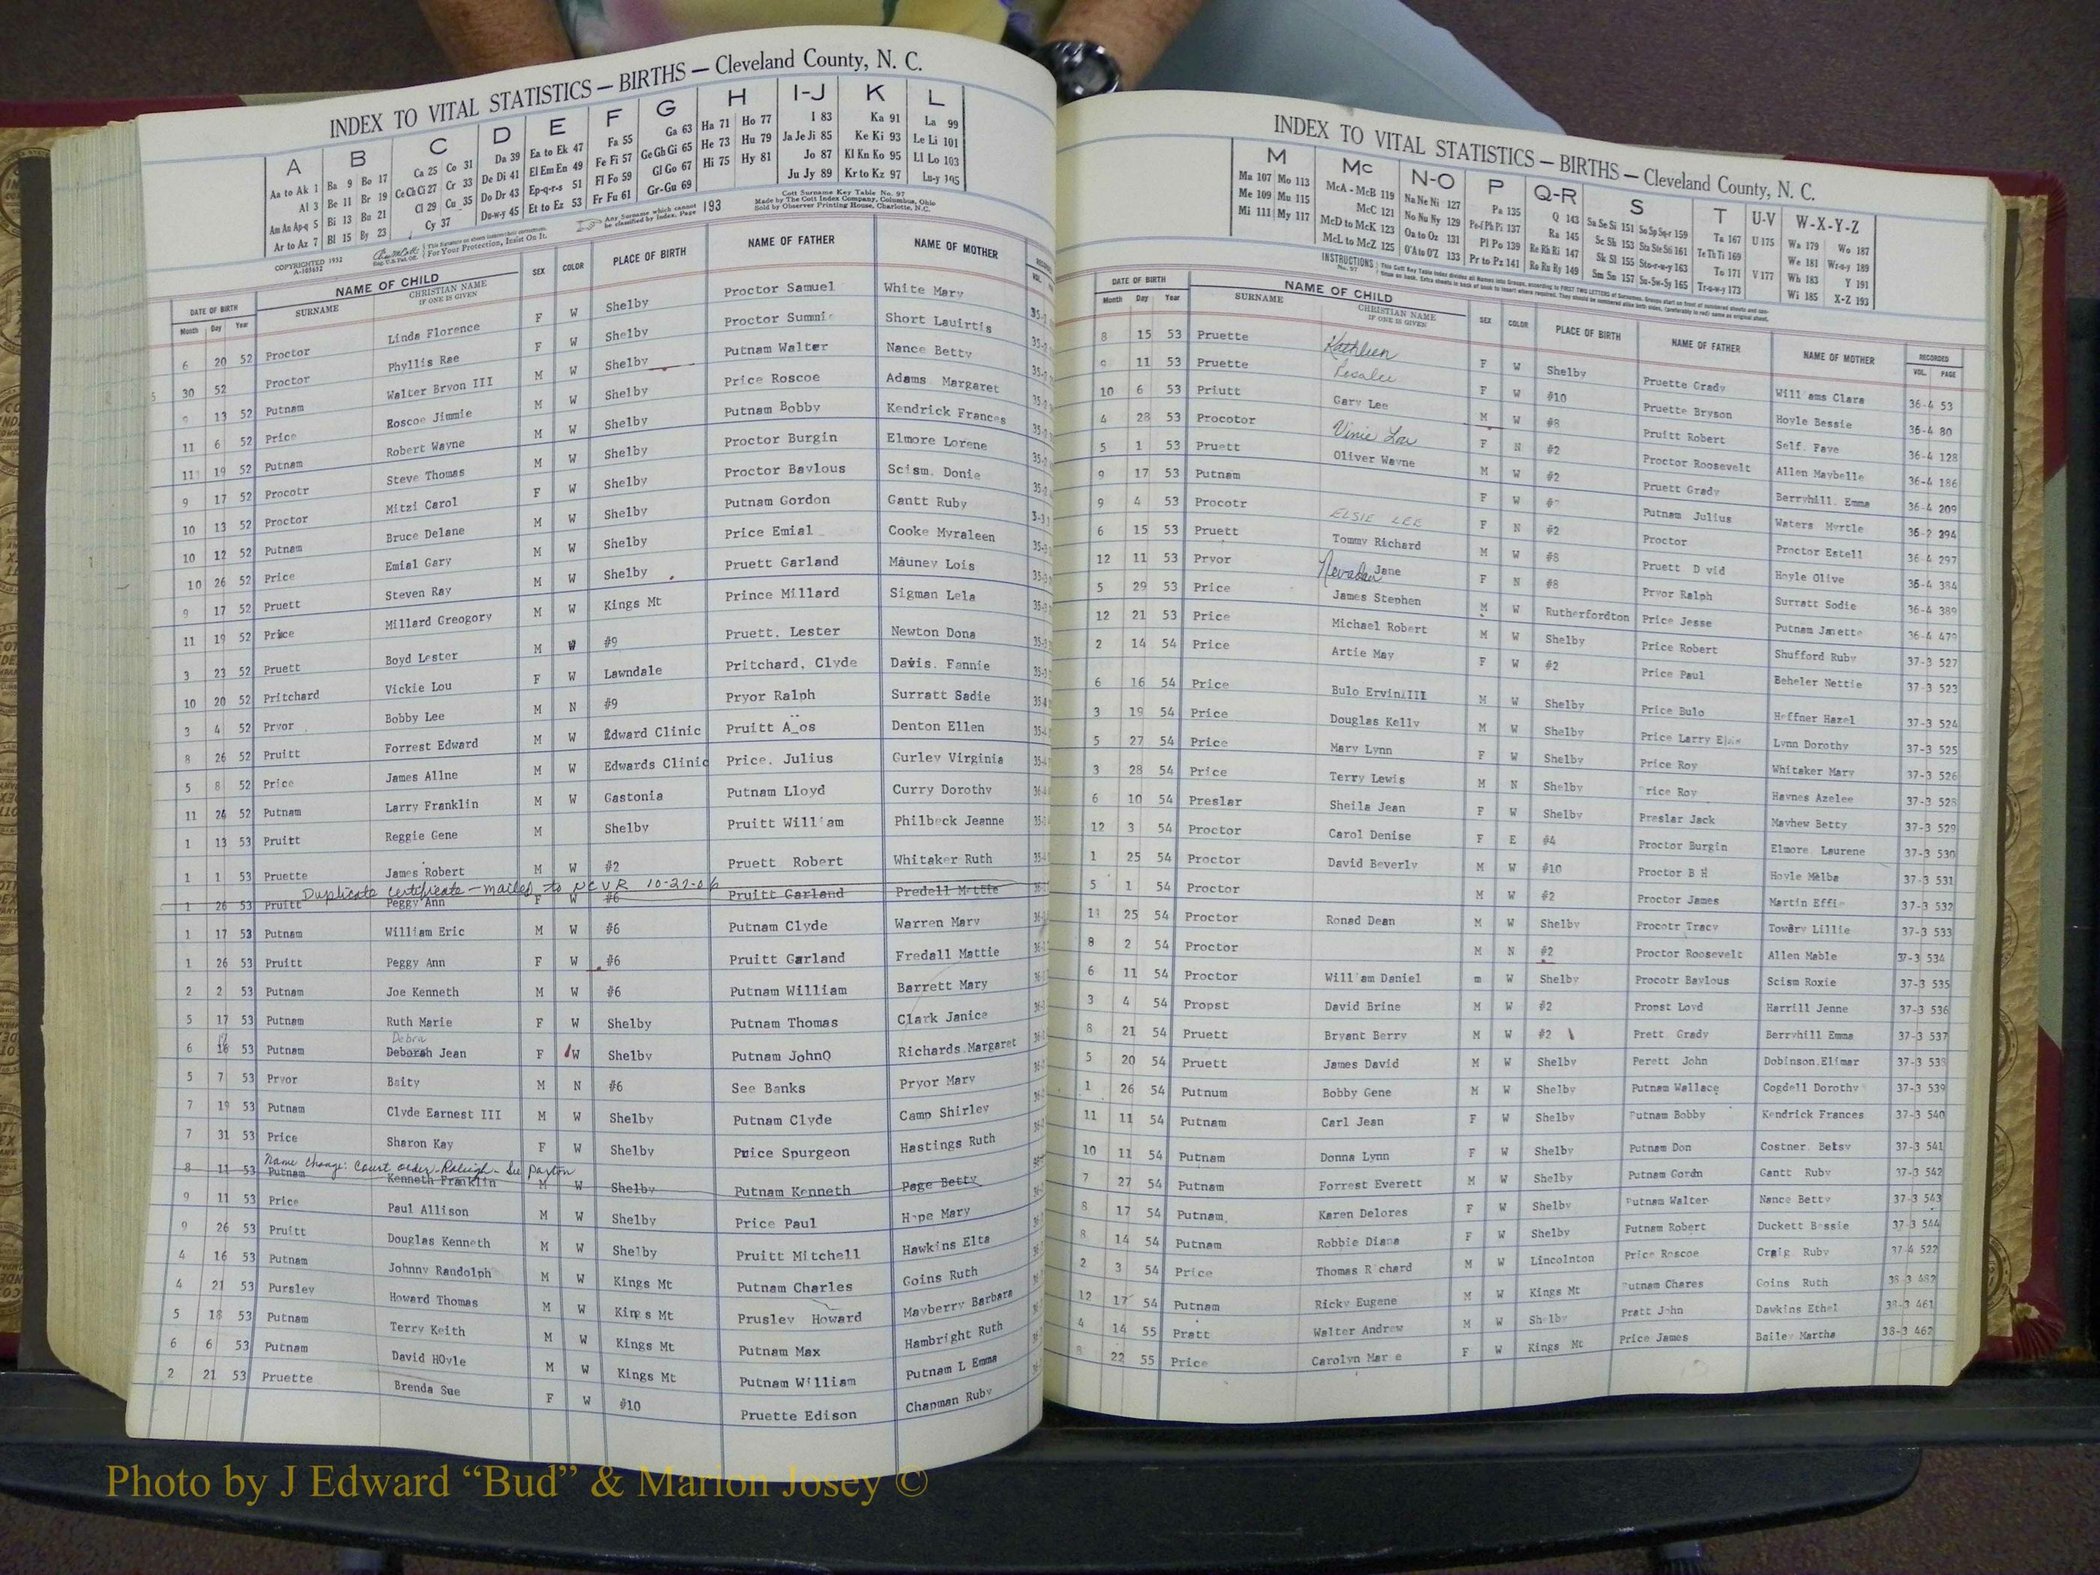 INDEX TO VITAL STATISTICS — BIRTHS — Cleveland County, N. C.
A B C D E F G H I-J K L
Aa to Ak 1 Ba 9 Bo 17 Ca 25 Co 31 Da 39 Ea to Ek 47 Fa 55 Ga 63 Ha 71 Ho 77 I 83 Ka 91 La 99
Al 3 Be 11 Br 19 Ce Ch Ci 27 Cr 33 De Di 41 El Em En 49 Fe Fi 57 Ge Gh Gi 65 He 73 Hu 79 Ja Je Ji 85 Ke Ki 93 Le Li 101
Am An Ap-q 5 Bi 13 Bu 21 Cl 29 Cu 35 Do Dr 43 Ep-q-r-s 51 Fl Fo 59 Gl Go 67 Hi 75 Hy 81 Jo 87 Kl Kn Ko 95 Ll Lo 103
Ar to Az 7 Bl 15 By 23 Cy 37 Du-w-y 45 Et to Ez 53 Fr Fu 61 Gr-Gu 69 Ju Jy 89 Kr to Kz 97 Lu-y 105
COPYRIGHTED 1932
For Your Protection, Insist On It.
Any Surname which cannot be classified by Index, Page 193
Cott Surname Key Table No. 97
Made by The Cott Index Company, Columbus, Ohio
Sold by Observer Printing House, Charlotte, N.C.
DATE OF BIRTH NAME OF CHILD SEX COLOR PLACE OF BIRTH NAME OF FATHER NAME OF MOTHER
Month Day Year SURNAME CHRISTIAN NAME IF ONE IS GIVEN VOL.
6 20 52 Proctor Linda Florence F W Shelby Proctor Samuel White Mary
30 52 Proctor Phyllis Rae F W Shelby Proctor Summie Short Lauirtis
9 13 52 Putnam Walter Bryon III M W Shelby Putnam Walter Nance Betty
11 6 52 Price Roscoe Jimmie M W Shelby Price Roscoe Adams Margaret
11 19 52 Putnam Robert Wayne M W Shelby Putnam Bobby Kendrick Frances
9 17 52 Procotr Steve Thomas M W Shelby Proctor Burgin Elmore Lorene
10 13 52 Proctor Mitzi Carol F W Shelby Proctor Baylous Scism. Donie
10 12 52 Putnam Bruce Delane M W Shelby Putnam Gordon Gantt Ruby
10 26 52 Price Emial Gary M W Shelby Price Emial Cooke Myraleen
9 17 52 Pruett Steven Ray M W Shelby Pruett Garland Mauney Lois
11 19 52 Price Millard Greogory M W Kings Mt Prince Millard Sigman Lela
3 23 52 Pruett Boyd Lester M W #9 Pruett. Lester Newton Dona
10 20 52 Pritchard Vickie Lou F W Lawndale Pritchard, Clyde Davis. Fannie
3 4 52 Pryor Bobby Lee M N #9 Pryor Ralph Surratt Sadie
8 26 52 Pruitt Forrest Edward M W Edward Clinic Pruitt A_os Denton Ellen
5 8 52 Price James Allne M W Edwards Clinic Price. Julius Gurley Virginia
11 24 52 Putnam Larry Franklin M W Gastonia Putnam Lloyd Curry Dorothy
1 13 53 Pruitt Reggie Gene M Shelby Pruitt Will am Philbeck Jeanne
1 1 53 Pruette James Robert M W #2 Pruett Robert Whitaker Ruth
Duplicate certificate - mailed to NCVR 10-27-06
1 26 53 Pruitt Peggy Ann F W #6 Pruitt Garland Predell Mattie
1 17 53 Putnam William Eric M W #6 Putnam Clyde Warren Mary
1 26 53 Pruitt Peggy Ann F W #6 Pruitt Garland Fredall Mattie
2 2 53 Putnam Joe Kenneth M W #6 Putnam William Barrett Mary
5 17 53 Putnam Ruth Marie F W Shelby Putnam Thomas Clark Janice
Debra
6 53 Putnam Deborah Jean F W Shelby Putnam JohnO Richards.Margaret
5 7 53 Pryor Baity M N #6 See Banks Pryor Mary
7 19 53 Putnam Clyde Earnest III M W Shelby Putnam Clyde Camp Shirley
7 31 53 Price Sharon Kay F W Shelby Price Spurgeon Hastings Ruth
Name Change: Court order-Raleigh- See Payton
8 11 53 Putnam Kenneth Franklin M W Shelby Putnam Kenneth Page Betty
9 11 53 Price Paul Allison M W Shelby Price Paul Hope Mary
9 26 53 Pruitt Douglas Kenneth M W Shelby Pruitt Mitchell Hawkins Elta
4 16 53 Putnam Johnny Randolph M W Kings Mt Putnam Charles Goins Ruth
4 21 53 Pursley Howard Thomas M W Kings Mt Prusley Howard Mayberry Barbara
5 18 53 Putnam Terry Keith M W Kings Mt Putnam Max Hambright Ruth
6 6 53 Putnam David HOyle M W Kings Mt Putnam William Putnam L Emma
2 21 53 Pruette Brenda Sue F W #10 Pruette Edison Chapman Ruby
INDEX TO VITAL STATISTICS — BIRTHS — Cleveland County, N. C.
M Mc N-O P Q-R S T U-V W-X-Y-Z
Ma 107 Mo 113 McA - McB 119 Na Ne Ni 127 Pa 135 Q 143 Sa Se Si 151 Sa Sp Sq-r 159 Ta 167 U 175 Wa 179 Wo 187
Me 109 Mu 115 McC 121 No Nu Ny 129 Pe-f Ph Pi 137 Ra 145 Sc Sh 153 Sta Ste Sti 161 Te Th Ti 169 We 181 Wr-u-y 189
Mi 111 My 117 McD to McK 123 Oa to Oz 131 Pl Po 139 Re Rh Ri 147 Sk Sl 155 Sto-r-u-y 163 To 171 V 177 Wh 183 Y 191
McL to McZ 125 O'A to O'Z 133 Pr to Pz 141 Ro Ru Ry 149 Sm Sn 157 Su-Sw-Sy 165 Tr-u-w-y 173 Wi 185 X-Z 193
INSTRUCTIONS
DATE OF BIRTH NAME OF CHILD SEX COLOR PLACE OF BIRTH NAME OF FATHER NAME OF MOTHER RECORDED
Month Day Year SURNAME CHRISTIAN NAME IF ONE IS GIVEN VOL. PAGE
8 15 53 Pruette Kathleen F W Shelby Pruette Grady Will ams Clara 36-4 53
9 11 53 Pruette Rosalee F W #10 Pruette Bryson Hoyle Bessie 36-4 80
10 6 53 Priutt Gary Lee M W #8 Pruitt Robert Self. Faye 36-4 128
4 28 53 Procotor Vinie Lou F N #2 Proctor Roosevelt Allen Maybelle 36-4 186
5 1 53 Pruett Oliver Wayne M W #2 Pruett Grady Berryhill. Emma 36-4 209
9 17 53 Putnam F W Putnam Julius Waters Myrtle 36-2 294
9 4 53 Procotr ELSIE LEE F N #2 Proctor Proctor Estell 36 4 297
6 15 53 Pruett Tommy Richard M W #8 Pruett D vid Hoyle Olive 36-4 384
12 11 53 Pryor Nevadan Jane F N #8 Pryor Ralph Surratt Sodie 36-4 389
5 29 53 Price James Stephen M W Rutherfordton Price Jesse Putnam Janette 36-4 479
12 21 53 Price Michael Robert M W Shelby Price Robert Shufford Ruby 37-3 527
2 14 54 Price Artie May F W #2 Price Paul Beheler Nettie 37-3 523
6 16 54 Price Bulo Ervin III M W Shelby Price Bulo Heffner Hazel 37-3 524
3 19 54 Price Douglas Kelly M W Shelby Price Larry Lynn Dorothy 37-3 525
5 27 54 Price Mary Lynn F W Shelby Price Roy Whitaker Mary 37-3 526
3 28 54 Price Terry Lewis M N Shelby rice Roy Haynes Azelee 37-3 528
6 10 54 Preslar Sheila Jean F W Shelby Preslar Jack Mayhew Betty 37-3 529
12 3 54 Proctor Carol Denise F E #4 Proctor Burgin Elmore Laurene 37-3 530
1 25 54 Proctor David Beverly M W #10 Proctor B H Hoyle Melba 37-3 531
5 1 54 Proctor M W #2 Proctor James Martin Effie 37-3 532
11 25 54 Proctor Ronad Dean M W Shelby Procotr Tracy Towery Lillie 37-3 533
8 2 54 Proctor M N #2 Proctor Roosevelt Allen Mable 37-3 534
6 11 54 Proctor Will am Daniel m W Shelby Procotr Baylous Scism Roxie 37-3 535
3 4 54 Propst David Brine M W #2 Propst Loyd Harrill Jenne 37-3 536
8 21 54 Pruett Bryant Berry M W #2 Prett Grady Berryhill Emma 37-3 537
5 20 54 Pruett James David M W Shelby Perett John Dobinson.Elimar 37-3 538
1 26 54 Putnum Bobby Gene M W Shelby Putnam Wallace Cogdell Dorothy 37-3 539
11 11 54 Putnam Carl Jean F W Shelby Putnam Bobby Kendrick Frances 37-3 540
10 11 54 Putnam Donna Lynn F W Shelby Putnam Don Costner. Betsy 37-3 541
7 27 54 Putnam Forrest Everett M W Shelby Putnam Gordn Gantt Ruby 37-3 542
8 17 54 Putnam Karen Delores F W Shelby Putnam Walter Nance Betty 37-3 543
8 14 54 Putnam Robbie Diana F W Shelby Putnam Robert Duckett Bessie 37-3 544
2 3 54 Price Thomas R chard M W Lincolnton Price Roscoe Craig. Ruby 37-4 522
12 17 54 Putnam Ricky Eugene M W Kings Mt Putnam Chares Goins Ruth 38-3 482
4 14 55 Pratt Walter Andrew M W Shelby Pratt John Dawkins Ethel 38-3 461
8 22 55 Price Carolyn Mar e F W Kings Mt Price James Bailey Martha 38-3 462
Photo by J Edward “Bud” & Marion Josey ©